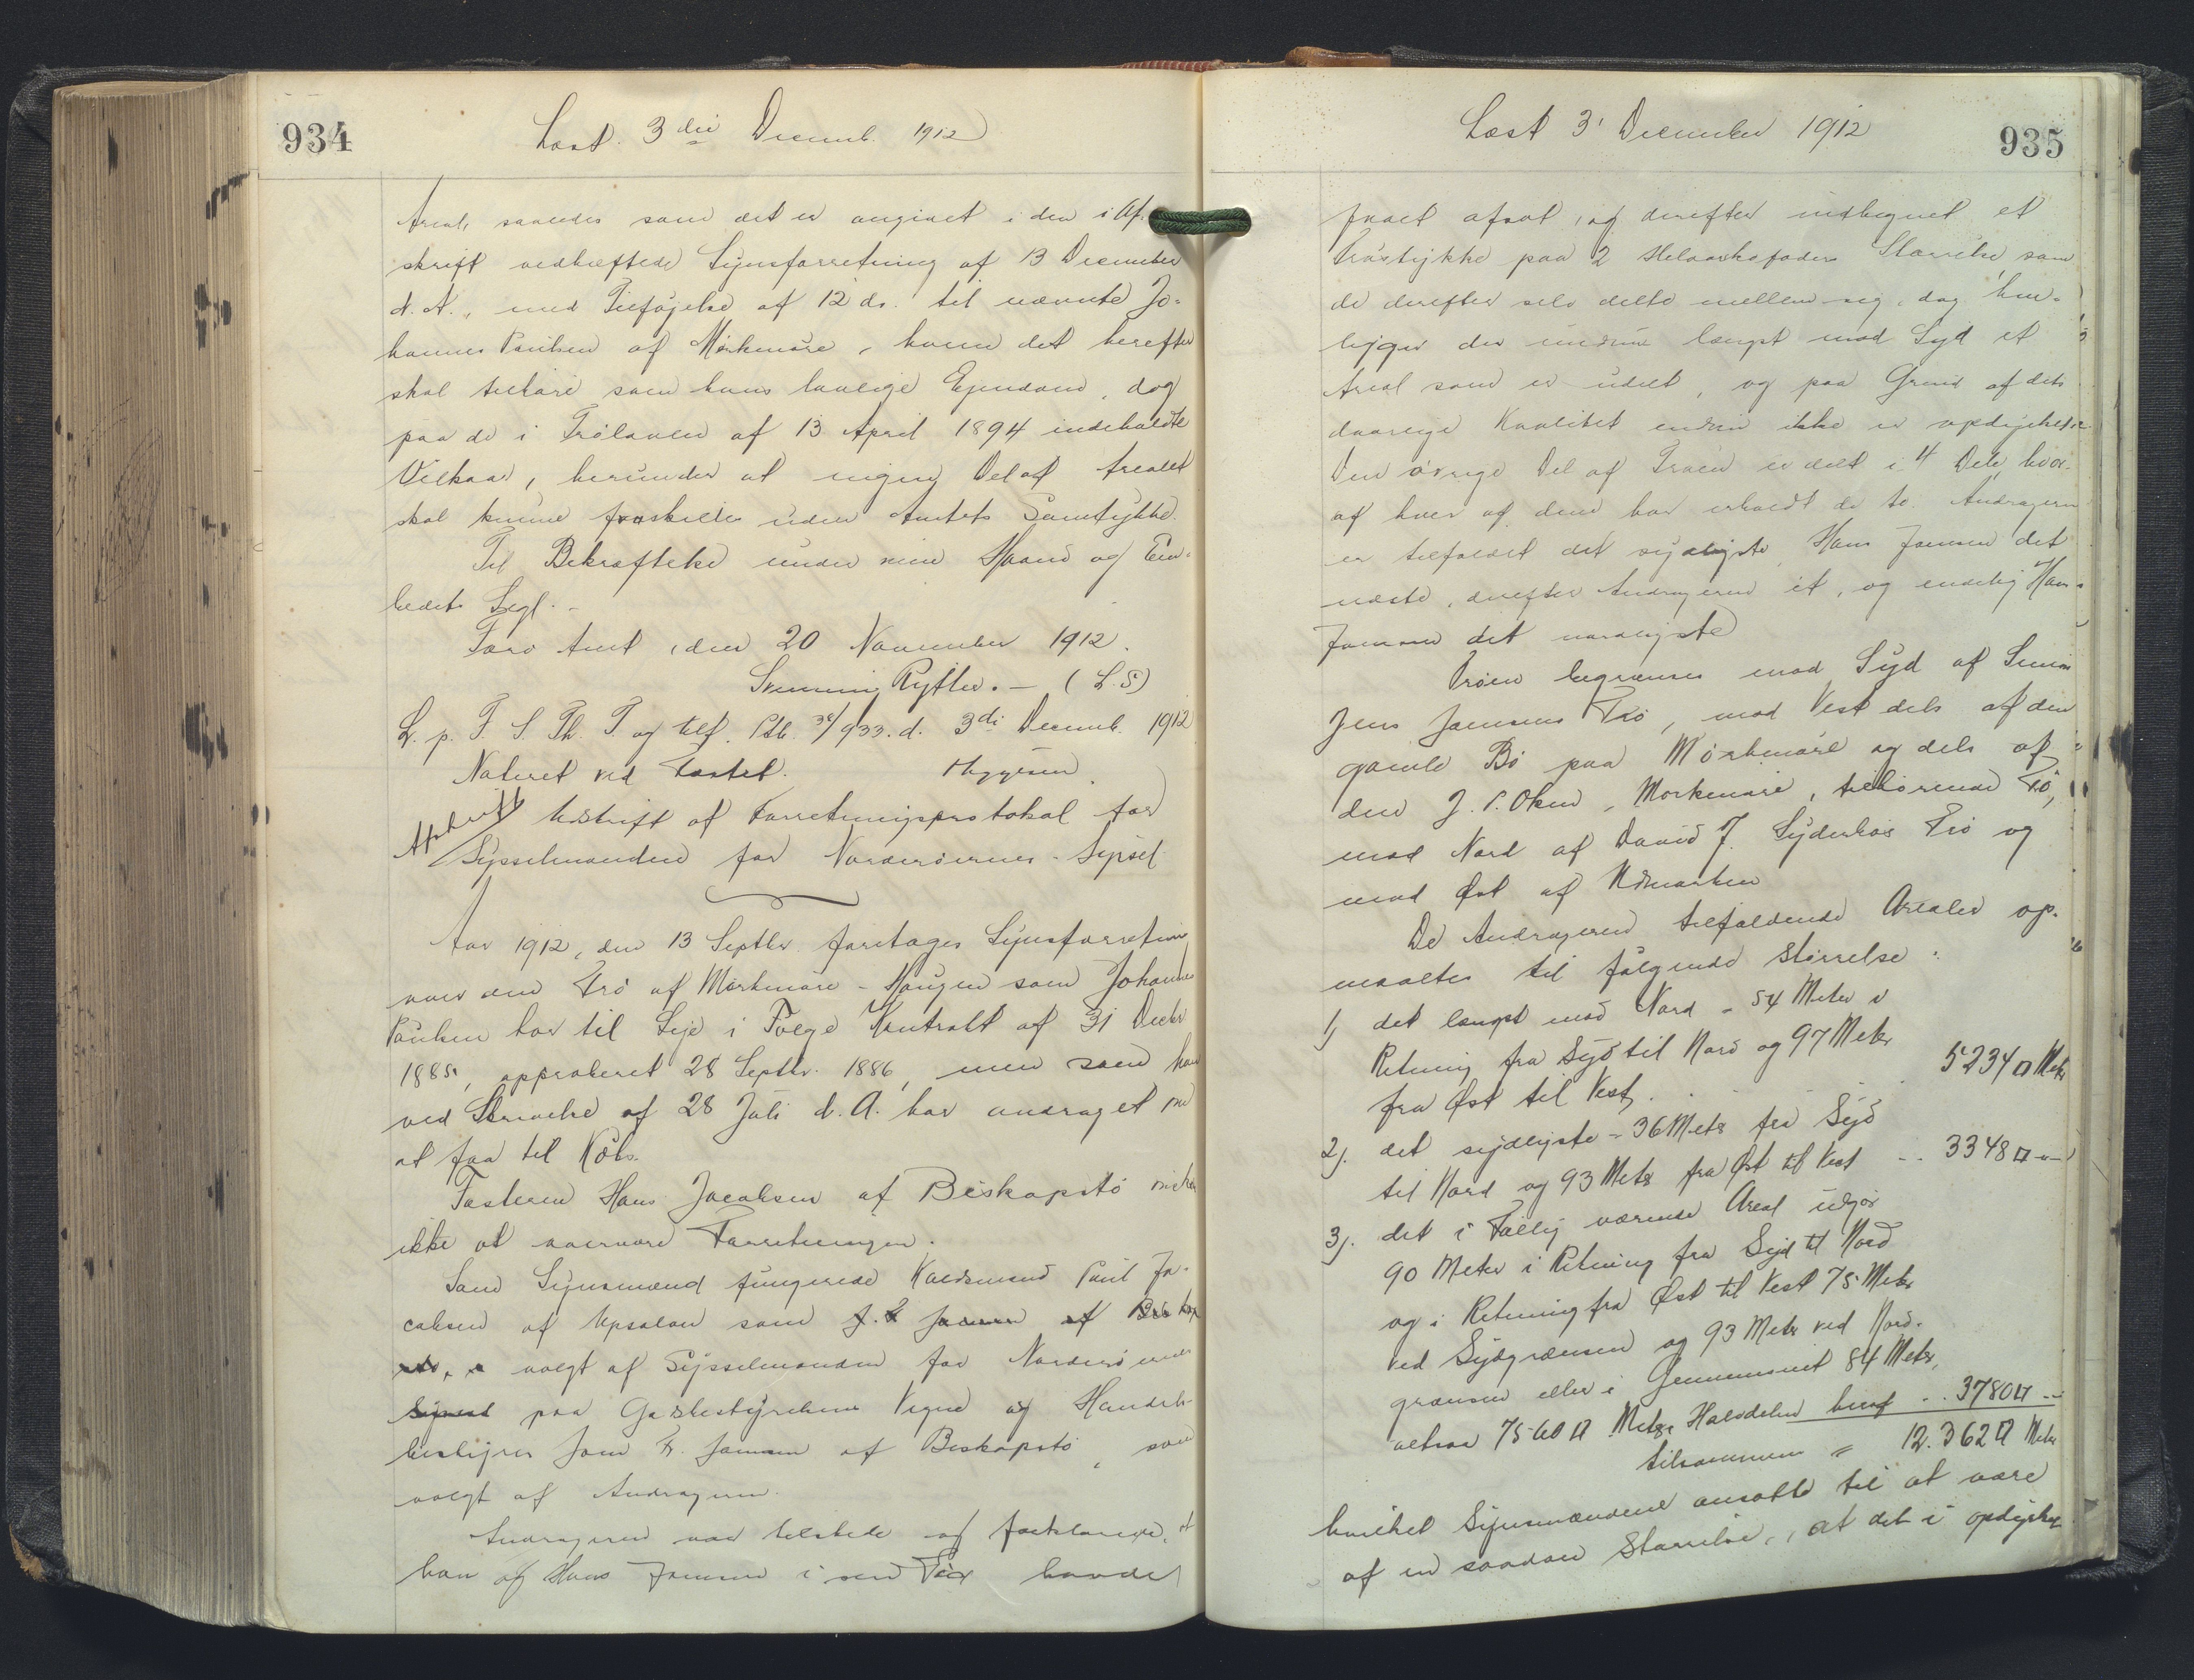 934
Læst. 3die Decemb. 1912
Areal, saaledes som det er angivet i den i Af-
skrift vedhæftede Synsforretning af 13 December
d. A., med Tilføjelse af 12 ds. til nævnte Jo-
hannes Poulsen af Mørkenøre, hvem det herefter
skal tilhøre som hans lovlige Ejendom, dog
paa de i Trøloven af 13 April 1894 indeholdte
Vilkaar, herunder at ingen Del af Arealet
skal kunne fraskilles uden Amtets Samtykke.
Til Bekræftelse under min Haand og Em-
bedets Segl. -
Færø Amt, den 20 November 1912.
Svenning Rytter. - (L. S)
L. p. F. S. Th. T. og tilf. Ptb. 933. d. 3di Decemb. 1912
Noteret ved Fæstet.
Afskrift
Udskrift af Forretningsprotokol for
Sysselmanden for Norderøernes-Syssel
Aar 1912, den 13 Septbr. foretoges Synsforretning
over den Trø af Mørkenøre - Haugen som Johannes
Poulsen har til Leje i Følge Kontrakt af 31 Decbr
1885, approberet 28 Septbr. 1886, men som han
ved Skrivelse af 28 Juli d. A. har andraget om
at faa til Købs.
Fæsteren Hans Jacobsen af Biskopstø ønsker
ikke at overvære Forretningen.
Som Synsmænd fungerede Kaldsmand Poul Ja-
cobsen af Upsalon som J. J. Joensen af Bis kop
stø, valgt af Sysselmanden for Norderøernes
Syssel paa Godsbestyrelsens Vegne og Handels-
bestyrer Joen F. Joensen af Biskopstø, som
valgt af Andrageren.
Andrageren var tilstede og forklarede, at
han og Hans Joensen i sin Tid havde
935
Læst 3' December 1912
faaet afsat, og derefter indhegnet et
Trøstykke paa 2 Helaarkofoders Størrelse som
de derefter selv delte mellem sig, dog hen-
ligger der endnu længst mod Syd et
Areal som er udelt, og paa Grund af dets
daarlige Kvalitet endnu ikke er opdyrket.
Den øvrige Del af Trøen er delt i 4 Dele, hvor-
af hver af dem har erholdt de to. Andrageren
er tilfaldet det sydligste, Hans Joensen det
næste, derefter Andrageren et, og endelig Hans
Joensen det nordligste
Trøen begrænses mod Syd af Simon
Jens Joensens Trø, mod Vest dels af den
gamle Bø paa Mørkenøre og dels af
den J. P. Olsen, Mørkenøre, tilhørende Trø,
mod Nord af David J. Syderbøs Trø og
mod Øst af Udmarken
De Andrageren tilfaldende Arealer op-
maaltes til følgende Størrelse:
1) det længst mod Nord - 54 Meter i
Retning fra Syd til Nord og 97 Meter
fra Øst til Vest. . . 5234 □ Metr
2). det sydligste - 36 Meter fra Syd
til Nord og 93 Meter fra Øst til Vest - .. 3348 □ -"-
3). det i Fællig værende Areal udgør
90 Meter i Retning fra Syd til Nord
og i Retning fra Øst til Vest 75 Meter
ved Sydgrænsen og 93 Meter ved Nord-
grænsen eller i Gennemsnit 84 Meter,
altsaa 7560 □ Meter, Halvdelen heraf .. 3780 □ -"-
tilsammen = 12.362 □ Meter
hvilket Synsmændene ansatte til at være
af en saadan Størrelse, at det i opdyrket